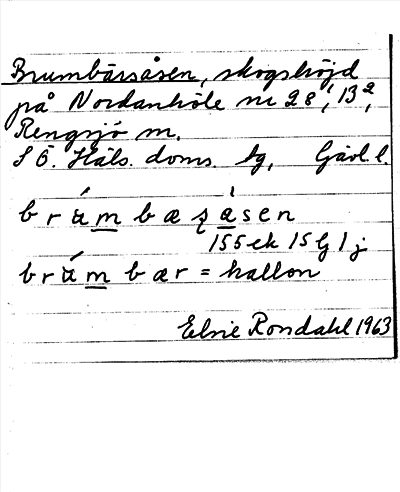 Brumbärsåsen, skogshöjd
på Nordanhöle nr 28¹, 13²,
Rengsjö sn.
S Ö. Häls. doms. tg, Gävl. l.
brám bæʂåsen
155 ek 15 G 1 j
brám bær = hallon
Elsie Rondahl 1963